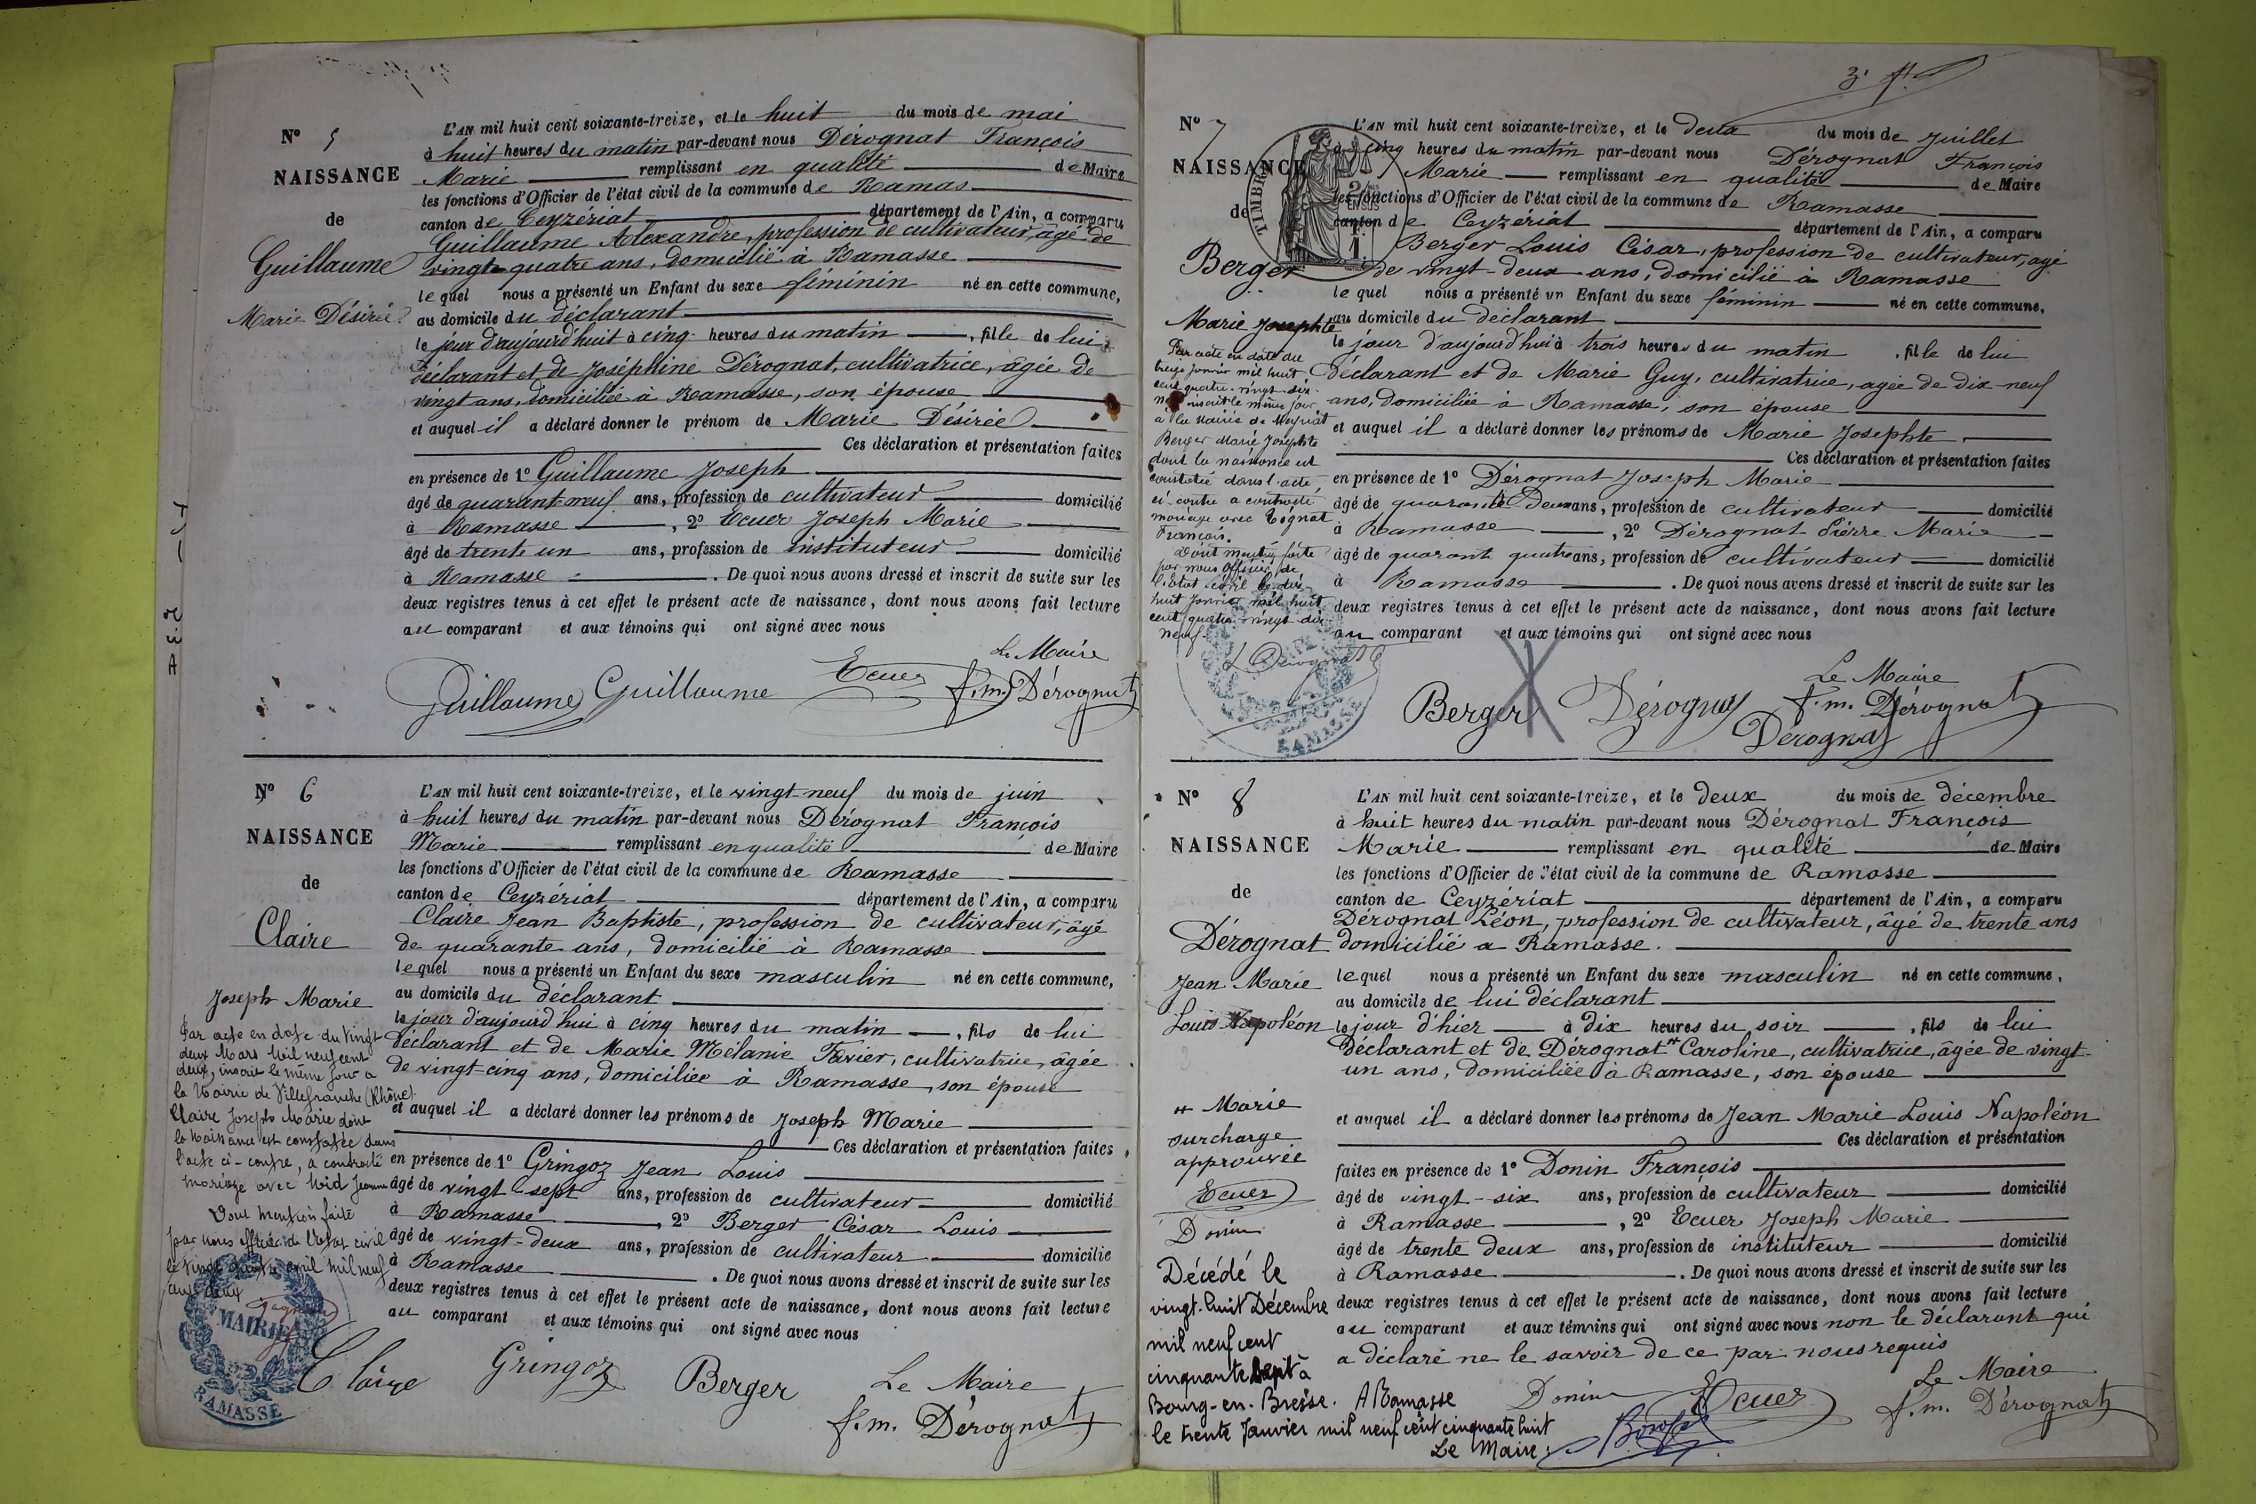 N° 5
NAISSANCE
de
Guillaume
Marie Désirée
L'AN mil huit cent soixante-treize, et le huit du mois de mai
à huit heures du matin par-devant nous Dérognat François
Marie remplissant en qualité de Maire
les fonctions d'Officier de l'état civil de la commune de Ramas
canton de Ceyzériat département de l'Ain, a comparu
Guillaume Alexandre, profession de cultivateur, âgé de
vingt-quatre ans, domicilié à Ramasse
lequel nous a présenté un Enfant du sexe féminin né en cette commune,
au domicile du déclarant
le jour d'aujourd'huit à cinq heures du matin, fille de lui
déclarant et de Joséphine Dérognat, cultivatrice, âgée de
vingt ans, domiciliée à Ramasse, son épouse
et auquel il a déclaré donner le prénom de Marie Désirée
Ces déclaration et présentation faites
en présence de 1° Guillaume Joseph
âgé de quarant-neuf ans, profession de cultivateur domicilié
à Ramasse, 2° Ecuer Joseph Marie
âgé de trente un ans, profession de instituteur domicilié
à Ramasse. De quoi nous avons dressé et inscrit de suite sur les
deux registres tenus à cet effet le présent acte de naissance, dont nous avons fait lecture
au comparant et aux témoins qui ont signé avec nous
Le Maire
Guillaume Guillaume Ecuer f.m. Dérognat
N° 6
NAISSANCE
de
Claire
Joseph Marie
Par acte en date du vingt
deux Mars mil neuf cent
deux, inscrit le même jour a
la Mairie de Villefranche (Rhône)
Claire Joseph Marie dont
la naissance est constatée dans
l'acte ci-contre, a contracté
mariage avec Nid Jeanne
Dont mention faite
par nous officier de l'état civil
le vingt quatre avril mil neuf
cent deux
MAIRIE
RAMASSE
L'AN mil huit cent soixante-treize, et le vingt-neuf du mois de juin
à huit heures du matin par-devant nous Dérognat François
Marie remplissant en qualité de Maire
les fonctions d'Officier de l'état civil de la commune de Ramasse
canton de Ceyzériat département de l'Ain, a comparu
Claire Jean Baptiste, profession de cultivateur, âgé
de quarante ans, domicilié à Ramasse
lequel nous a présenté un Enfant du sexe masculin né en cette commune,
au domicile du déclarant
le jour d'aujourd'hui à cinq heures du matin, fils de lui
déclarant et de Marie Mélanie Favier, cultivatrice, âgée
de vingt-cinq ans, domiciliée à Ramasse, son épouse
et auquel il a déclaré donner les prénoms de Joseph Marie
Ces déclaration et présentation faites
en présence de 1° Gringoz Jean Louis
âgé de vingt-sept ans, profession de cultivateur domicilié
à Ramasse, 2° Berger César Louis
âgé de vingt-deux ans, profession de cultivateur domicilié
à Ramasse. De quoi nous avons dressé et inscrit de suite sur les
deux registres tenus à cet effet le présent acte de naissance, dont nous avons fait lecture
au comparant et aux témoins qui ont signé avec nous
Claire Gringoz Berger Le Maire
f.m. Dérognat
3e
N° 7
NAISSANCE
de
TIMBRE
Berger
Marie Josephte
Par acte en date du
treize janvier mil huit
cent quatre-vingt dix
neuf inscrit le même jour
a la mairie de Meyriat
Berger Marie Josephte
dont la naissance est
constatée dans l'acte
ci-contre a contracté
mariage avec Tognat
François.
Dont mention faite
par nous Officier de
l'Etat civil le dix
huit Janvier mil huit
cent quatre vingt dix
neuf.
RAMASSE
L'AN mil huit cent soixante-treize, et le deux du mois de Juillet
à cinq heures du matin par-devant nous Dérognat François
Marie remplissant en qualité de Maire
les fonctions d'Officier de l'état civil de la commune de Ramasse
canton de Ceyzériat département de l'Ain, a comparu
Berger Louis César, profession de cultivateur, âgé
de vingt-deux ans, domicilié à Ramasse
lequel nous a présenté un Enfant du sexe féminin né en cette commune,
au domicile du déclarant
le jour d'aujourd'hui à trois heures du matin, fille de lui
déclarant et de Marie Guy, cultivatrice, âgée de dix-neuf
ans, domiciliée à Ramasse, son épouse
et auquel il a déclaré donner les prénoms de Marie Josephte
Ces déclaration et présentation faites
en présence de 1° Dérognat Joseph Marie
âgé de quarante deux ans, profession de cultivateur domicilié
à Ramasse, 2° Dérognat Pierre Marie
âgé de quarant quatre ans, profession de cultivateur domicilié
à Ramasse. De quoi nous avons dressé et inscrit de suite sur les
deux registres tenus à cet effet le présent acte de naissance, dont nous avons fait lecture
au comparant et aux témoins qui ont signé avec nous
Le Maire
Berger Dérognat f.m. Dérognat
Dérognat
N° 8
NAISSANCE
de
Dérognat
Jean Marie
Louis Napoléon
Marie
surcharge
approuvée
Ecuer
Donin
Décédé le
vingt-huit Décembre
mil neuf cent
cinquante sept à
Bourg-en-Bresse. A Ramasse
le trente Janvier mil neuf cent cinquante huit
Le Maire:
L'AN mil huit cent soixante-treize, et le deux du mois de décembre
à huit heures du matin par-devant nous Dérognat François
Marie remplissant en qualité de Maire
les fonctions d'Officier de l'état civil de la commune de Ramasse
canton de Ceyzériat département de l'Ain, a comparu
Dérognat Léon, profession de cultivateur, âgé de trente ans
domicilié a Ramasse.
lequel nous a présenté un Enfant du sexe masculin né en cette commune,
au domicile de lui déclarant
le jour d'hier à dix heures du soir, fils de lui
déclarant et de Dérognat Caroline, cultivatrice, âgée de vingt-
un ans, domiciliée à Ramasse, son épouse
et auquel il a déclaré donner les prénoms de Jean Marie Louis Napoléon
Ces déclaration et présentation
faites en présence de 1° Donin François
âgé de vingt-six ans, profession de cultivateur domicilié
à Ramasse, 2° Ecuer Joseph Marie
âgé de trente deux ans, profession de instituteur domicilié
à Ramasse. De quoi nous avons dressé et inscrit de suite sur les
deux registres tenus à cet effet le présent acte de naissance, dont nous avons fait lecture
au comparant et aux témoins qui ont signé avec nous non le déclarant qui
a déclaré ne le savoir de ce par nous requis
Le Maire
Donin Ecuer f.m. Dérognat